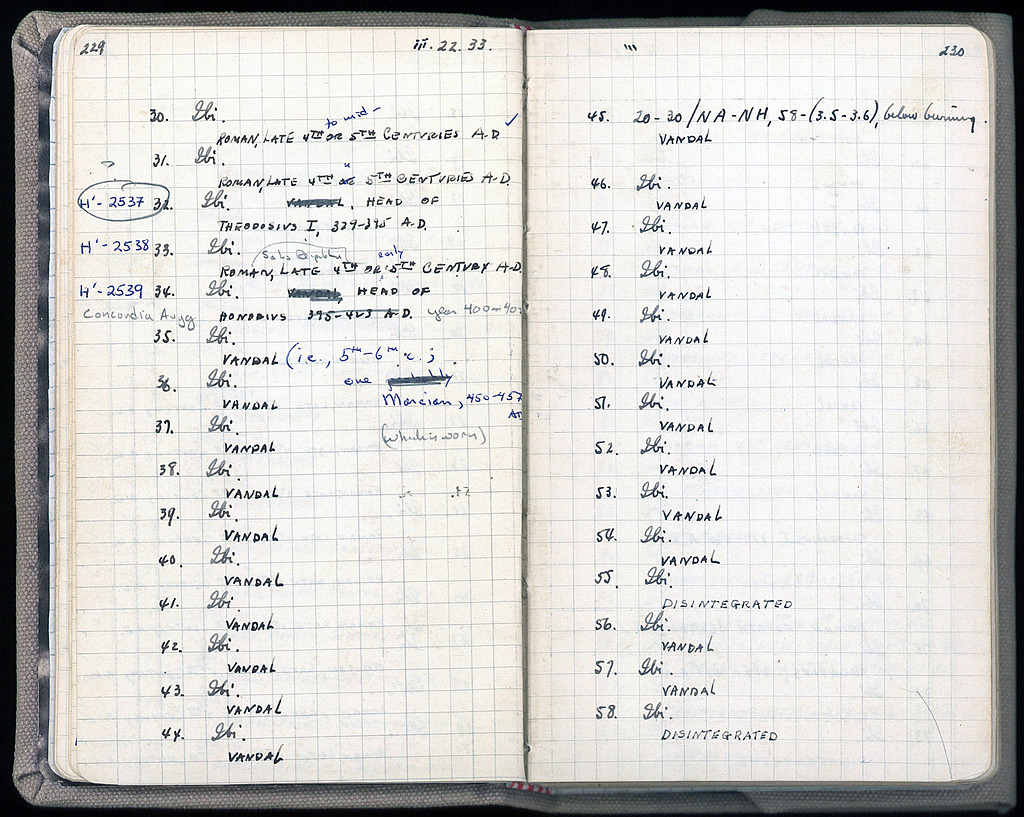 229
iii. 22. 33.
30. Ibi.
to mid-
ROMAN, LATE 4TH OR 5TH CENTURIES A.D. ✓
31. Ibi.
"
ROMAN, LATE 4TH OR 5TH CENTURIES A.D.
H'-2537 32. Ibi. VANDAL, HEAD OF
THEODOSIUS I, 329-395 A.D.
H'-2538 33. Ibi.
early
ROMAN, LATE 4TH OR 5TH CENTURY A.D.
H'-2539 34. Ibi. HEAD OF
Concordia Auggg HONORIUS 395-423 A.D. year 400-
35. Ibi.
VANDAL (i.e., 5TH-6TH c.;
36. Ibi. one
VANDAL Marcian, 450-457
AD
37. Ibi. (which is worn)
VANDAL
38. Ibi.
VANDAL
39. Ibi.
VANDAL
40. Ibi.
VANDAL
41. Ibi.
VANDAL
42. Ibi.
VANDAL
43. Ibi.
VANDAL
44. Ibi.
VANDAL
"' 230
45. 20-30/NA-NH, 58-(3.5-3.6), below burning.
VANDAL
46. Ibi.
VANDAL
47. Ibi.
VANDAL
48. Ibi.
VANDAL
49. Ibi.
VANDAL
50. Ibi.
VANDAL
51. Ibi.
VANDAL
52. Ibi.
VANDAL
53. Ibi.
VANDAL
54. Ibi.
VANDAL
55. Ibi.
DISINTEGRATED
56. Ibi.
VANDAL
57. Ibi.
VANDAL
58. Ibi.
DISINTEGRATED